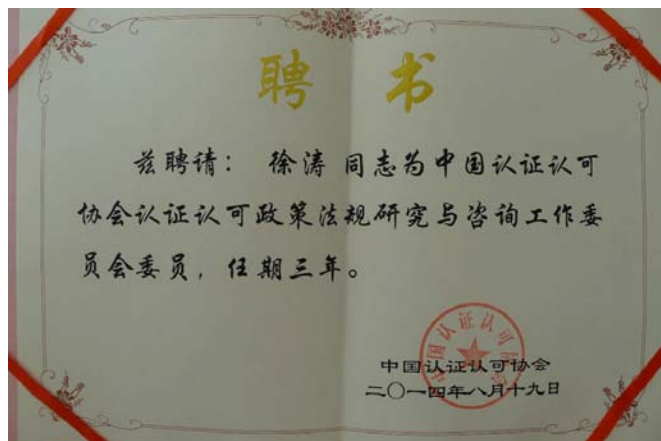 聘 书
兹聘请： 徐涛 同志为中国认证认可
协会认证认可政策法规研究与咨询工作委
员会委员，任期三年。
中国认证认可协会
二〇一四年八月十九日
中国认证认可协会